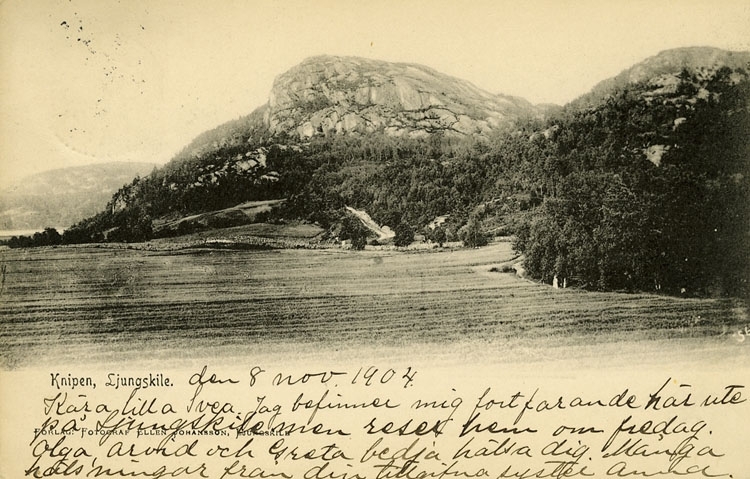 Knipen, Ljungskile. den 8 nov. 1904
Kära lilla Svea. Jag befinner mig fortfarande här ute
på Ljungskile men reser hem om fredag.
FÖRLAG: FOTOGRAF ELLEN JOHANSSON, LJUNGSKILE
Olga, Arvid och Greta bedja hälsa dig. Många
hälsningar från din tillgifna syster Anna.